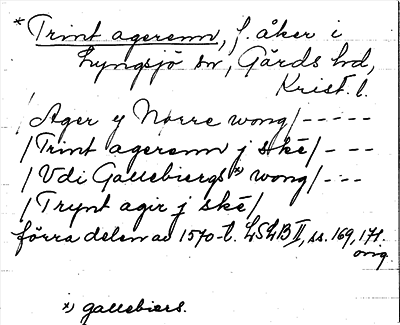 * Trint agerenn, f. åker i
Lyngsjö sn, Gärds hd,
Krist. l.
/Ager y Nørre wong/-----
/Trint agerenn j skě/---
/Vdi Gallebiergs *) wong/---
/Trynt agir j skě/
förra delen av 1570-t. LSLB II, ss. 169, 171.
orig.
*) gallebiers.